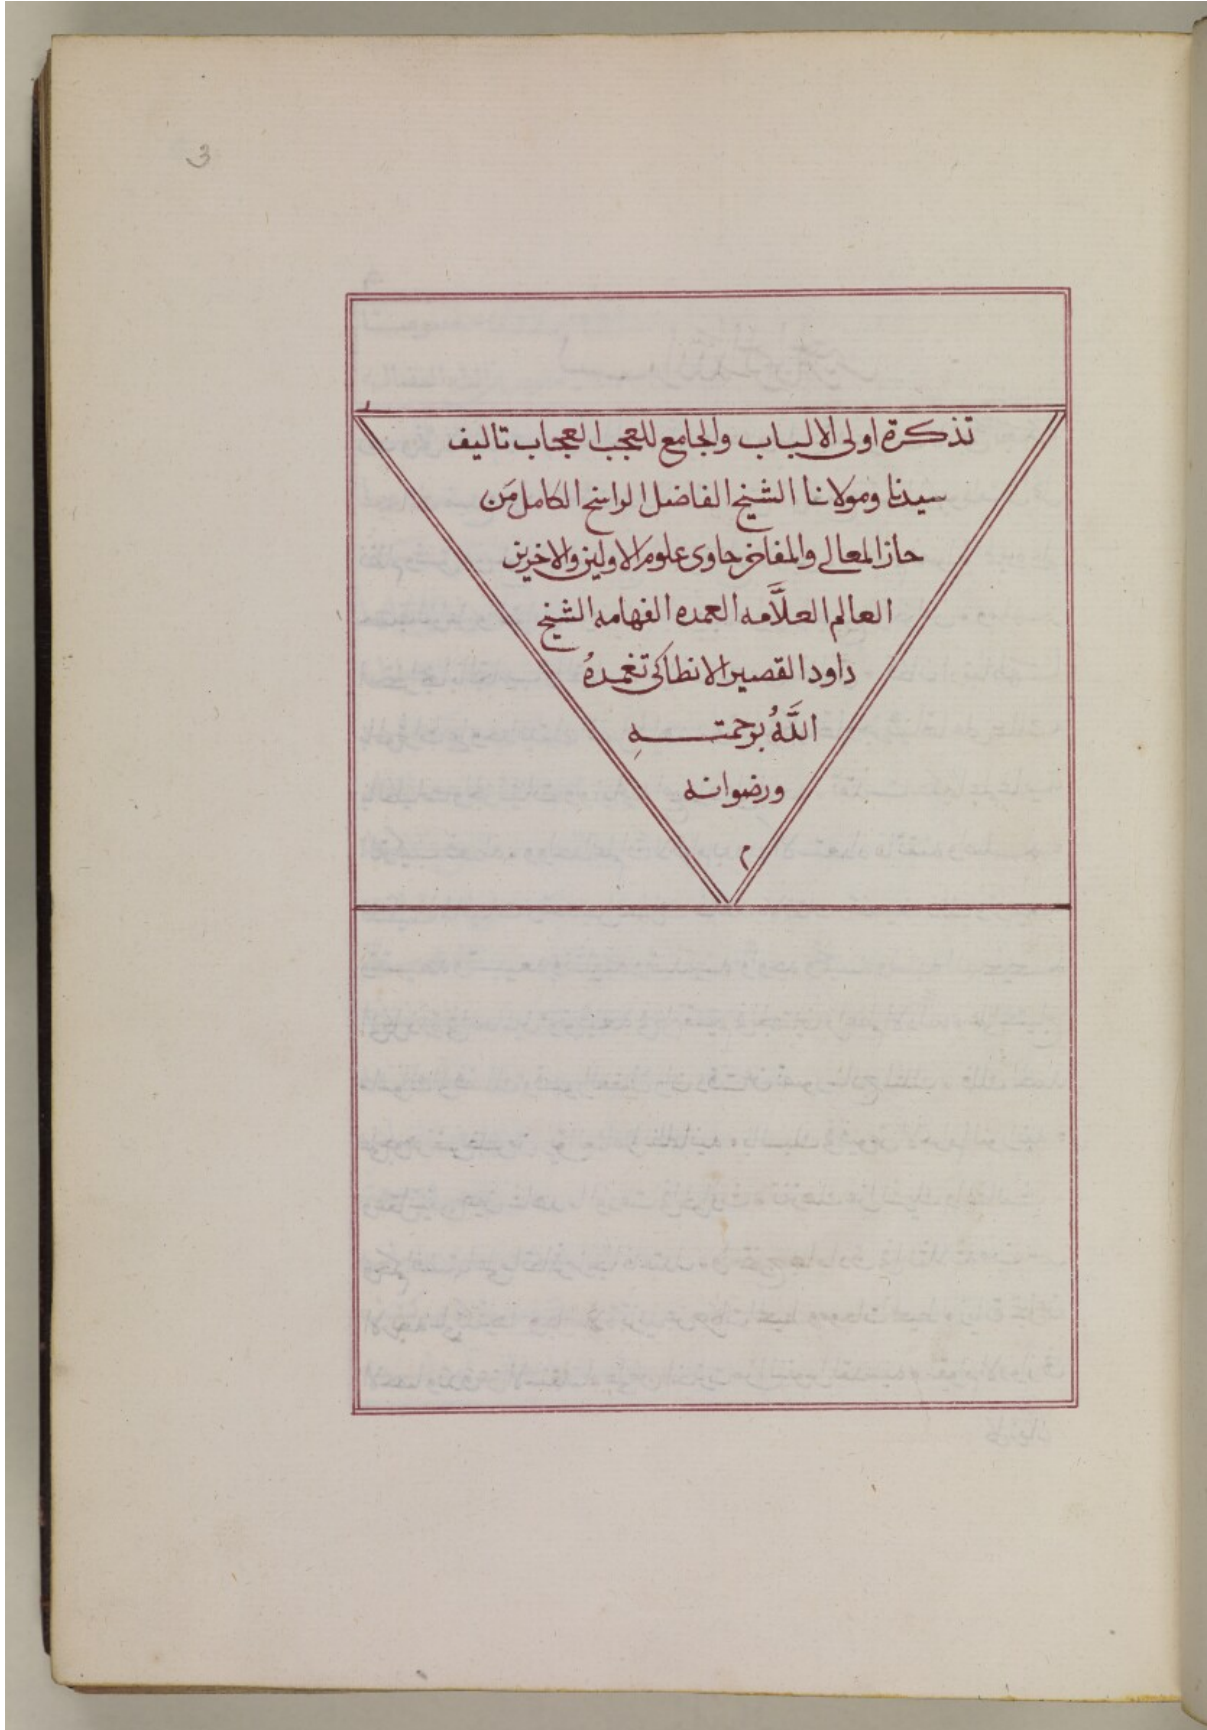 3
تذكرة اولى الالباب والجامع للعجب العجاب تاليف
سيدنا ومولانا الشيخ الفاضل الراسخ الكامل مَن
حاز المعالي والمفاخر حاوى علوم الاولين والاخرين
العالم العلَّامه العمده الفهامه الشيخ
داود القصير الانطاكى تغمدهُ
اللَّهُ برحمتهِ
ورضوانه
م